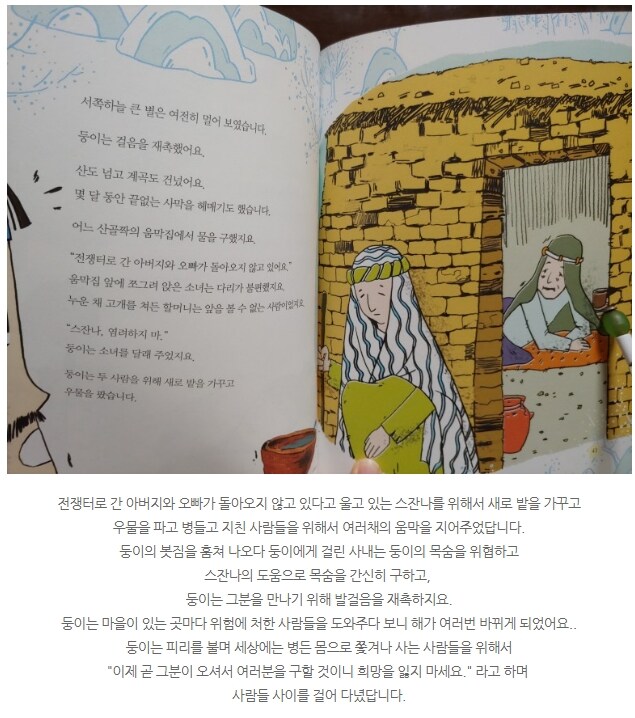 서쪽하늘 큰 별은 여전히 멀어 보였습니다.
둥이는 걸음을 재촉했어요.
산도 넘고 계곡도 건넜어요.
몇 달 동안 끝없는 사막을 헤매기도 했습니다.
어느 산골짝의 움막집에서 물을 구했지요.
"전쟁터로 간 아버지와 오빠가 돌아오지 않고 있어요."
움막집 앞에 쪼그려 앉은 소녀는 다리가 불편했지요.
누운 채 고개를 쳐든 할머니는 앞을 볼 수 없는 사람이었지요.
"스잔나, 염려하지 마."
둥이는 소녀를 달래 주었지요.
둥이는 두 사람을 위해 새로 밭을 가꾸고
우물을 팠습니다.
41
전쟁터로 간 아버지와 오빠가 돌아오지 않고 있다고 울고 있는 스잔나를 위해서 새로 밭을 가꾸고
우물을 파고 병들고 지친 사람들을 위해서 여러채의 움막을 지어주었답니다.
둥이의 봇짐을 훔쳐 나오다 둥이에게 걸린 사내는 둥이의 목숨을 위협하고
스잔나의 도움으로 목숨을 간신히 구하고,
둥이는 그분을 만나기 위해 발걸음을 재촉하지요.
둥이는 마을이 있는 곳마다 위험에 처한 사람들을 도와주다 보니 해가 여러번 바뀌게 되었어요..
둥이는 피리를 불며 세상에는 병든 몸으로 쫓겨나 사는 사람들을 위해서
"이제 곧 그분이 오셔서 여러분을 구할 것이니 희망을 잃지 마세요." 라고 하며
사람들 사이를 걸어 다녔답니다.